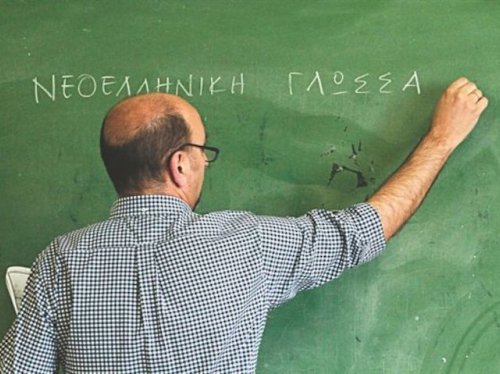 ΝΕΟΕΛΛΗΝΙΚΗ ΓΛΩΣΣΑ